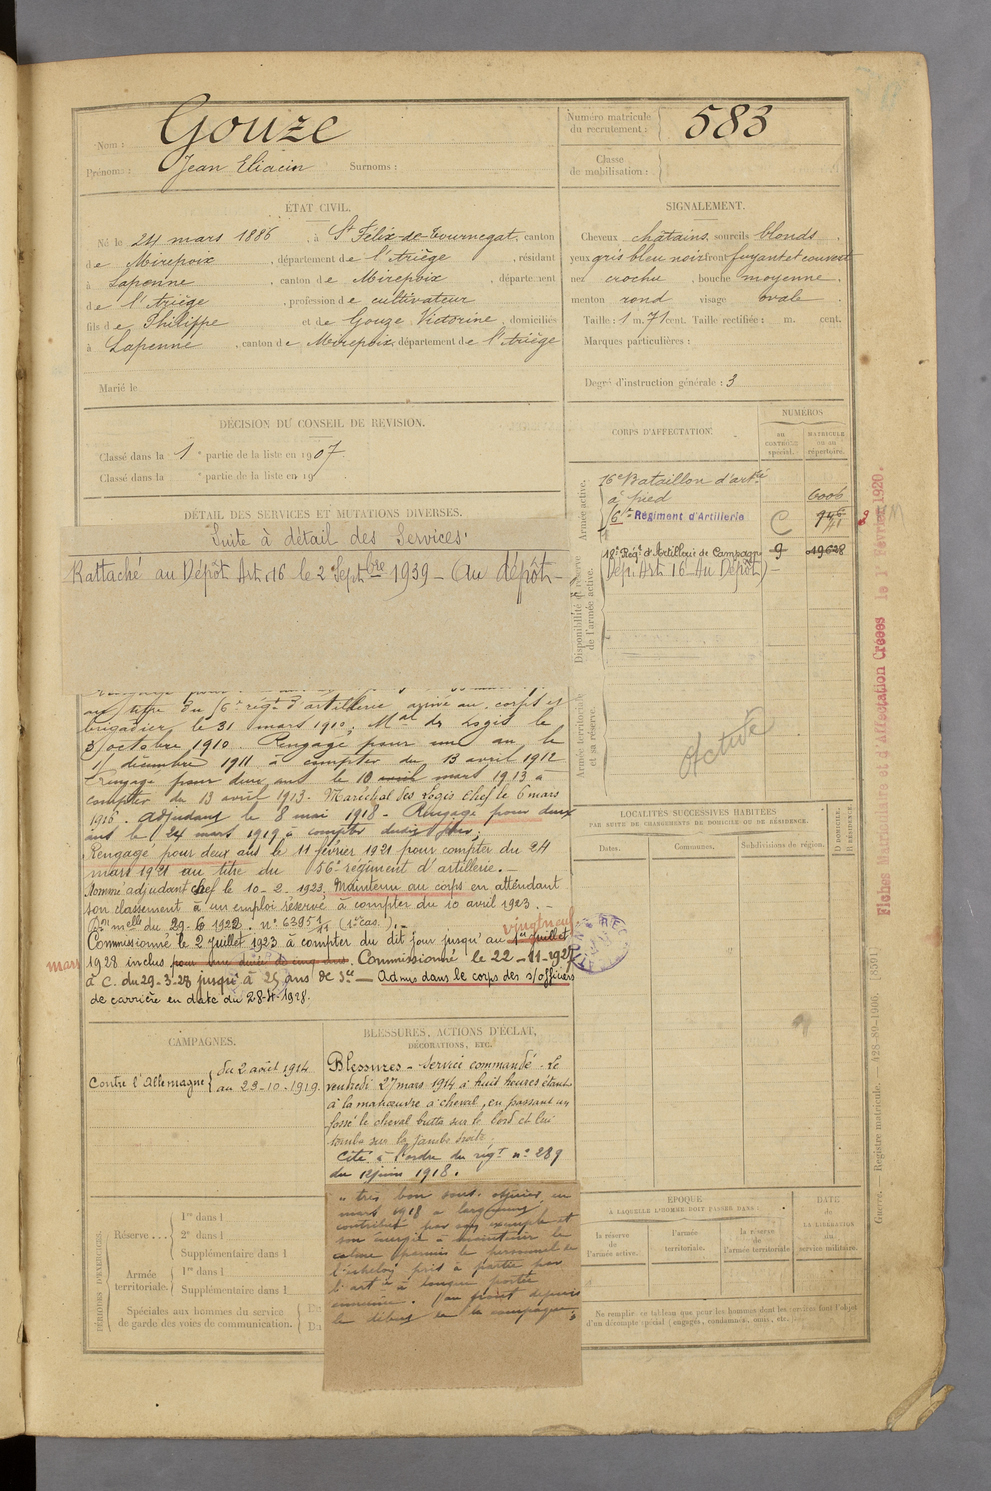 Nom : Gouze
Prénoms : Jean Eliacin Surnoms :
Numéro matricule du recrutement : 583
Classe de mobilisation :
ÉTAT CIVIL.
Né le 24 mars 1886, à St Félix-de-Tournegat, canton
de Mirepoix, département de l'Ariège, résidant
à Lapenne, canton de Mirepoix, département
de l'Ariège, profession de cultivateur
fils de Philippe et de Gouze Victorine, domiciliés
à Lapenne, canton de Mirepoix, département de l'Ariège
Marié le
SIGNALEMENT.
Cheveux châtains, sourcils blonds.
yeux gris bleu noir front fuyant et couvert
nez crochu, bouche moyenne.
menton rond visage ovale
Taille : 1 m. 71 cent. Taille rectifiée : m. cent.
Marques particulières :
Degré d'instruction générale : 3
DÉCISION DU CONSEIL DE REVISION.
Classé dans la 1e partie de la liste en 1907.
Classé dans la e partie de la liste en 19
DÉTAIL DES SERVICES ET MUTATIONS DIVERSES.
Suite à détail des Services.
Rattaché au Dépôt Art. 16 le 2 Septbre 1939 - (Au dépôt -
au titre du 6e régt d'artillerie arrivé au corps et
brigadier le 31 mars 1910; Mal des Logis le
3 octobre 1910. Rengagé pour un an le
11 décembre 1911 à compter du 13 avril 1912
Rengagé pour deux ans le 10 avril mars 1913 à
compter du 13 avril 1913. Maréchal des Logis Chef le 6 mars
1916. Adjudant le 8 mai 1918 - Rengagé pour deux
ans le 24 mars 1919 à compter dudit jour;
Rengagé pour deux ans le 11 février 1921 pour compter du 24
mars 1921 au titre du 56e régiment d'artillerie. -
Nommé adjudant chef le 10-2-1923. Maintenu au corps en attendant
son classement à un emploi réservé à compter du 10 avril 1923. -
Don melle du 29-6 1922. n° 63951
Commissionné le 2 juillet 1923 à compter du dit jour jusqu'au 1er juillet vingt neuf
mars 1928 inclus pour une durée de cinq ans. Commissionné le 22-11-1927
à C. du 29-3-28 jusqu'à 25 ans de Sce - Admis dans le corps des s/officiers
de carrière en date du 28-4-1928.
CORPS D'AFFECTATION.
NUMÉROS
AU CONTRÔLE spécial.
MATRICULE ou au répertoire.
Armée active.
16e Bataillon d'artie
à pied 6006
6e Régiment d'Artillerie C
Disponibilité et réserve de l'armée active.
18e Régt d'Artillerie de Campagne 9
Dép. Art. 16 (Au Dépôt) -
Armée territoriale et sa réserve.
Active
LOCALITÉS SUCCESSIVES HABITÉES
PAR SUITE DE CHANGEMENTS DE DOMICILE OU DE RÉSIDENCE.
Dates. Communes. Subdivisions de région. D DOMICILE. R RÉSIDENCE.
CAMPAGNES.
Contre l'Allemagne { du 2 août 1914
au 23-10-1919.
BLESSURES, ACTIONS D'ÉCLAT,
DÉCORATIONS, ETC.
Blessures - Service commandé. Le
vendredi 27 mars 1914 à huit heures étant
à la manœuvre à cheval, en passant un
fossé le cheval butta sur le bord et lui
tomba sur la jambe droite.
Cité à l'ordre du régt n° 289
du 12 juin 1918.
" très bon sous-officier, en
mars 1918 a largement
contribué par son exemple et
son énergie à maintenir le
calme parmi le personnel de
l'échelon pris à partie par
l'artie à longue portée
ennemie. Au front depuis
le début de la campagne."
PÉRIODES D'EXERCICES.
Réserve... 1re dans l
2e dans l
Supplémentaire dans l
Armée territoriale. 1re dans l
Supplémentaire dans l
Spéciales aux hommes du service
de garde des voies de communication.
ÉPOQUE
À LAQUELLE L'HOMME DOIT PASSER DANS
la réserve de l'armée active.
l'armée territoriale.
la réserve de l'armée territoriale.
DATE de LA LIBÉRATION du service militaire.
Ne remplir ce tableau que pour les hommes dont les services font l'objet
d'un décompte spécial (engagés, condamnés, omis, etc.)
Fiches Matricule et d'Affectation Créées le 1er Février 1920.
Guerre. - Registre matricule. - 428-89-1906. [8591]